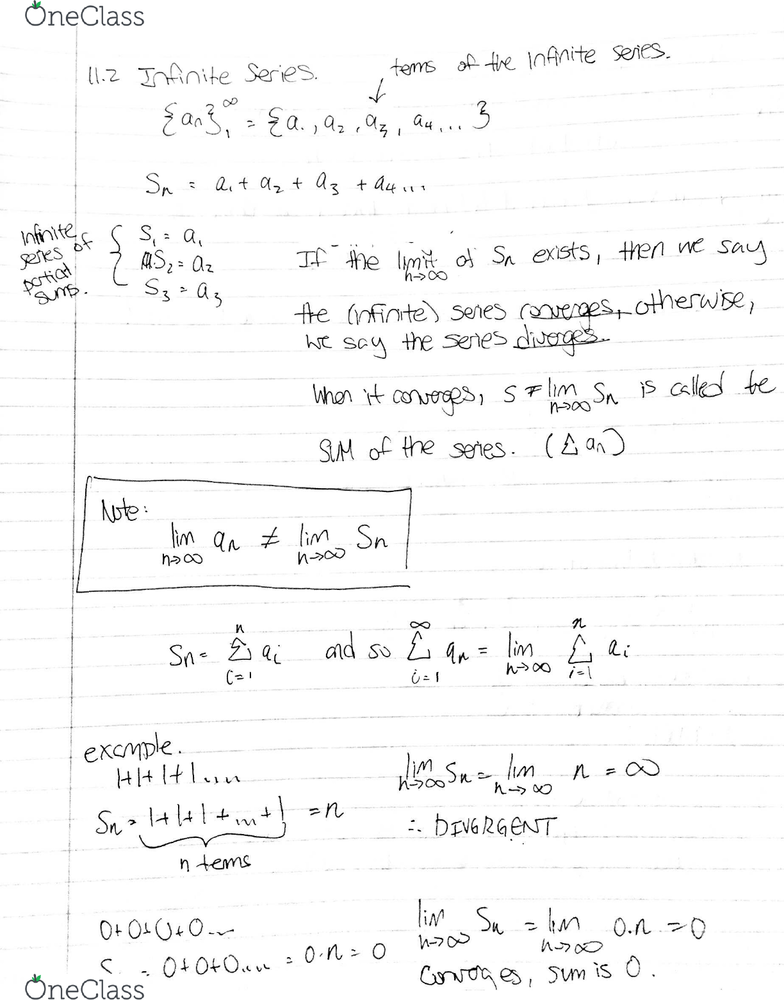 OneClass
11.2 Infinite Series.
terms of the infinite series.
{an}₁^∞ = {a₁, a₂, a₃, a₄... }
Sn = a₁ + a₂ + a₃ + a₄...
Infinite series of partial sums.
S₁ = a₁
S₂ = a₂
S₃ = a₃
If the limit n→∞ of Sn exists, then we say
the (infinite) series converges, otherwise,
we say the series diverges.
When it converges, S = lim n→∞ Sn is called be
SUM of the series. (Σ an)
Note:
lim n→∞ an ≠ lim n→∞ Sn
Sn = Σ i=1 n ai and so Σ i=1 ∞ an = lim n→∞ Σ i=1 n ai
example.
1+1+1+1....
Sn = 1+1+1+...+1 = n
n terms
lim n→∞ Sn = lim n→∞ n = ∞
∴ DIVERGENT
0+0+0+0...
S = 0+0+0.... = 0·n = 0
lim n→∞ Sn = lim n→∞ 0.n = 0
Converges, sum is 0.
OneClass